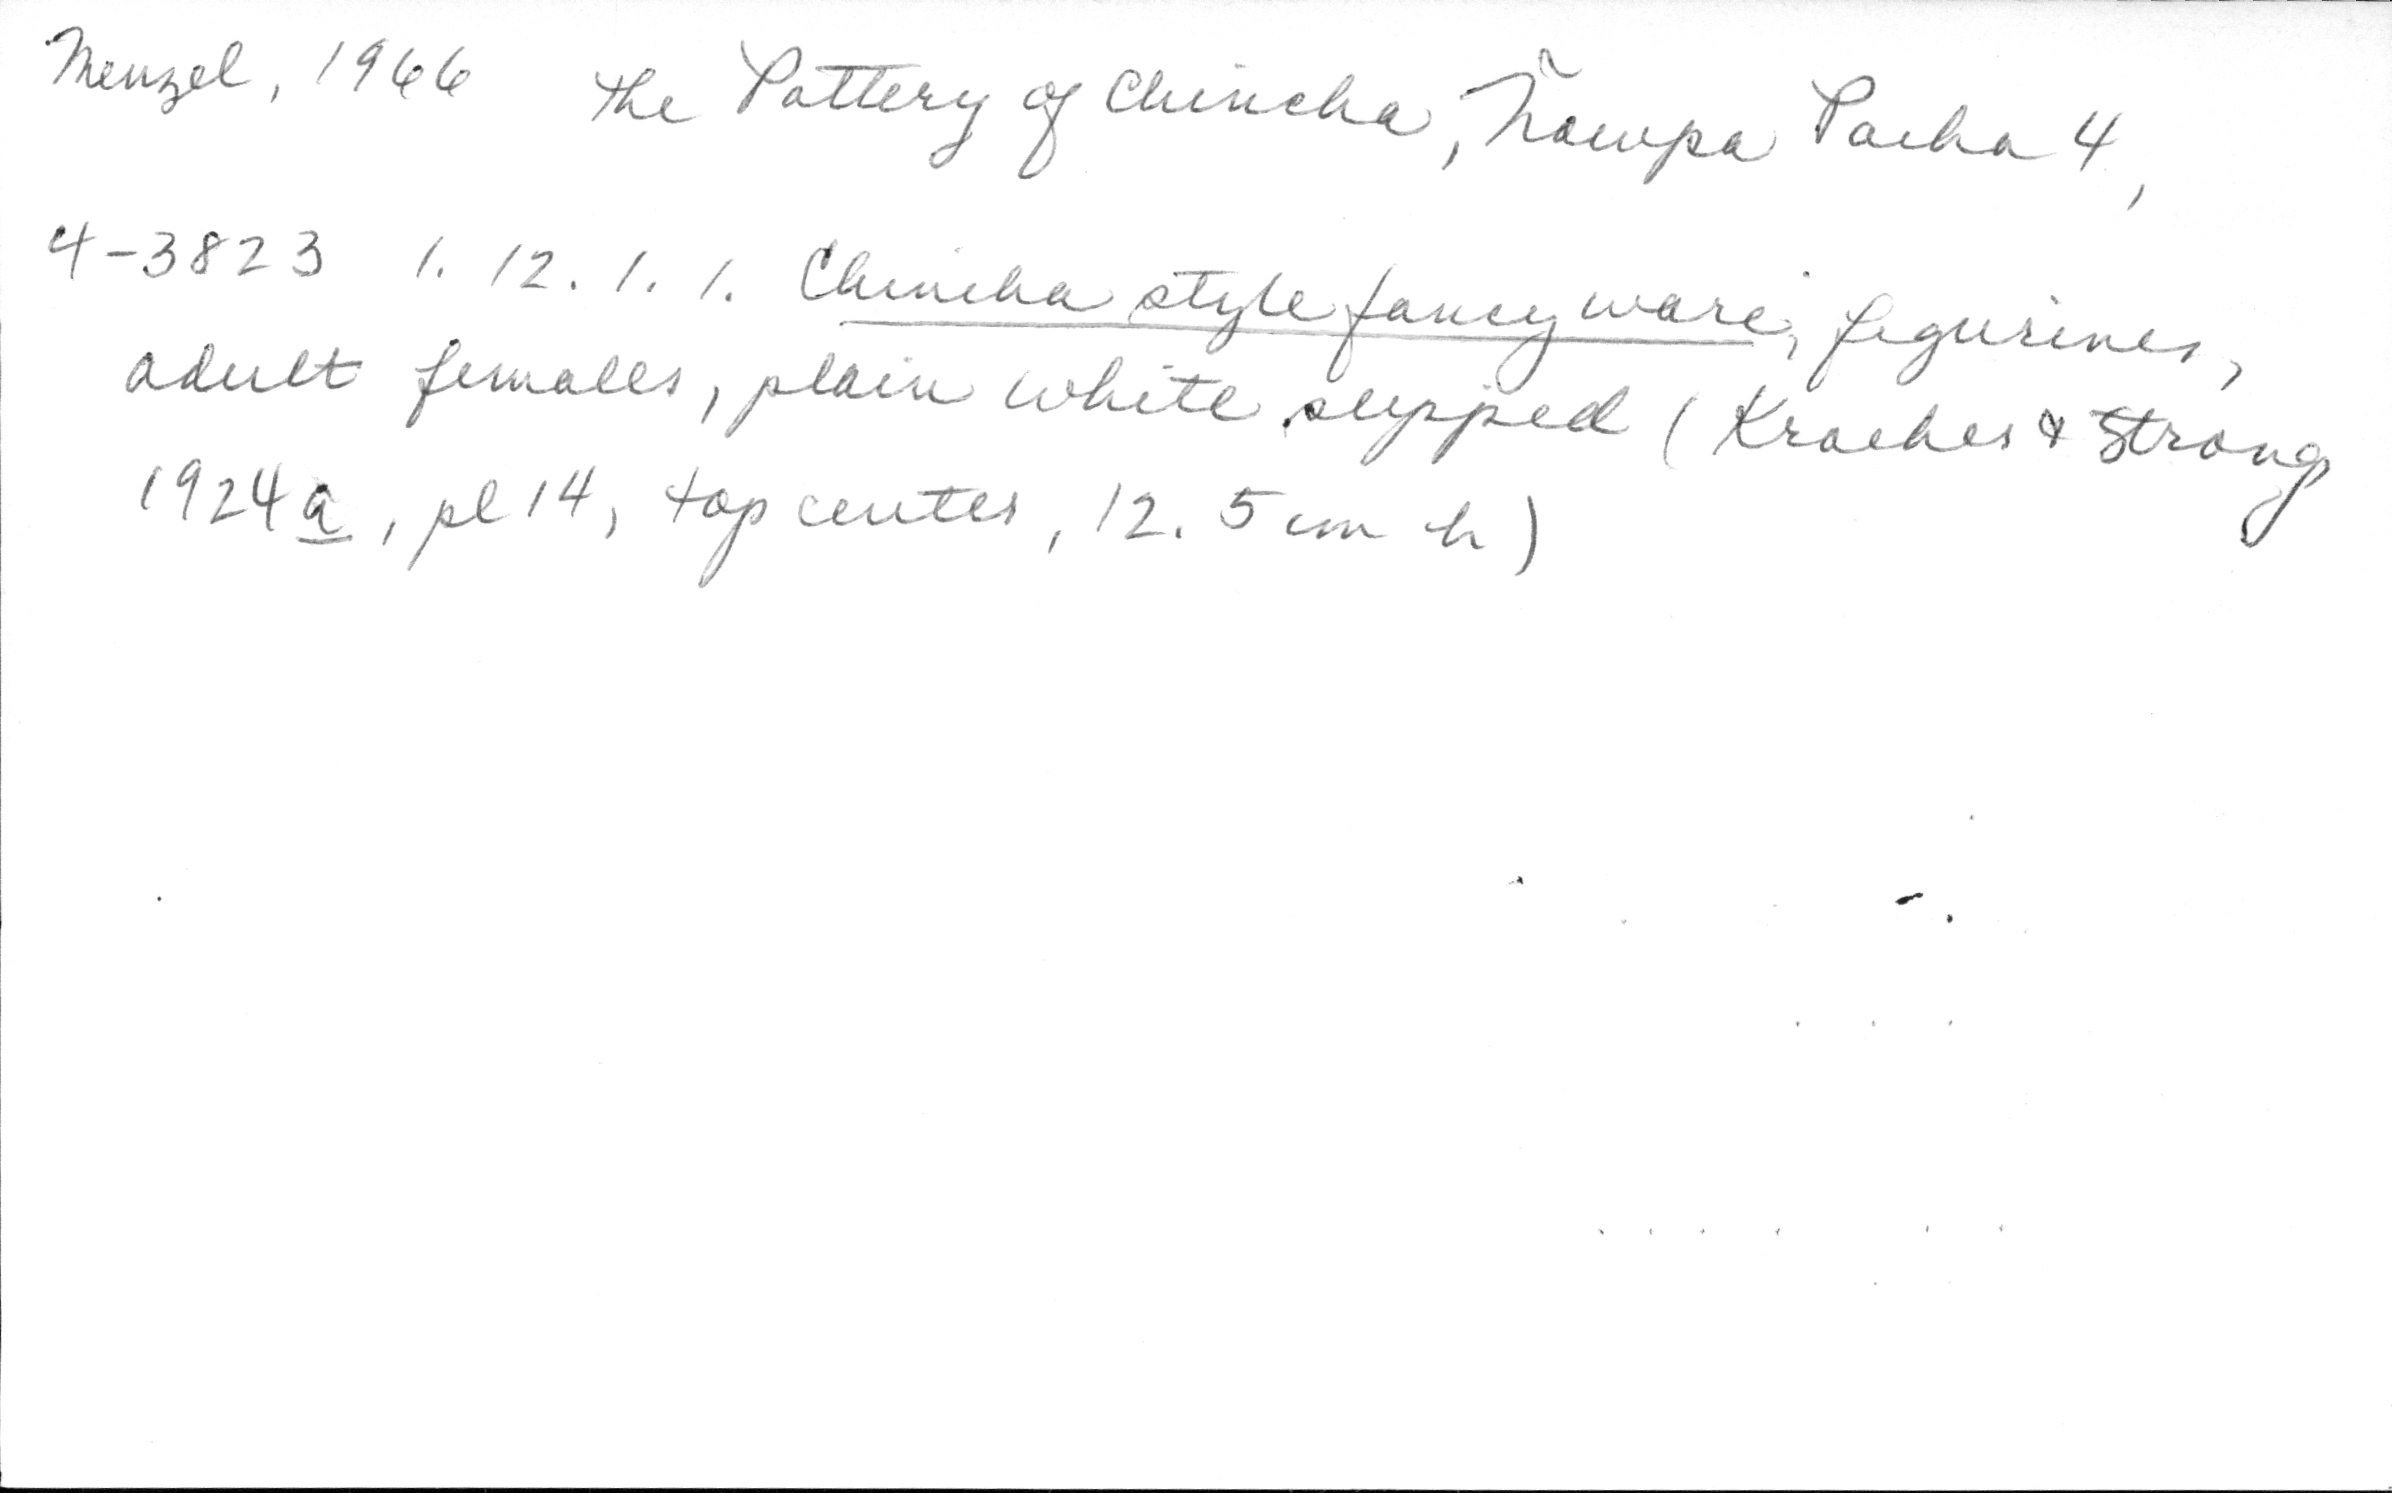 Menzel, 1966 the Pottery of Chincha, Ñawpa Pacha 4,
4-3823 1. 12. 1. 1. Chincha style fancy ware, figurines,
adult females, plain white slipped (Kroeber & Strong
1924a, pl 14, top center, 12.5 cm h)